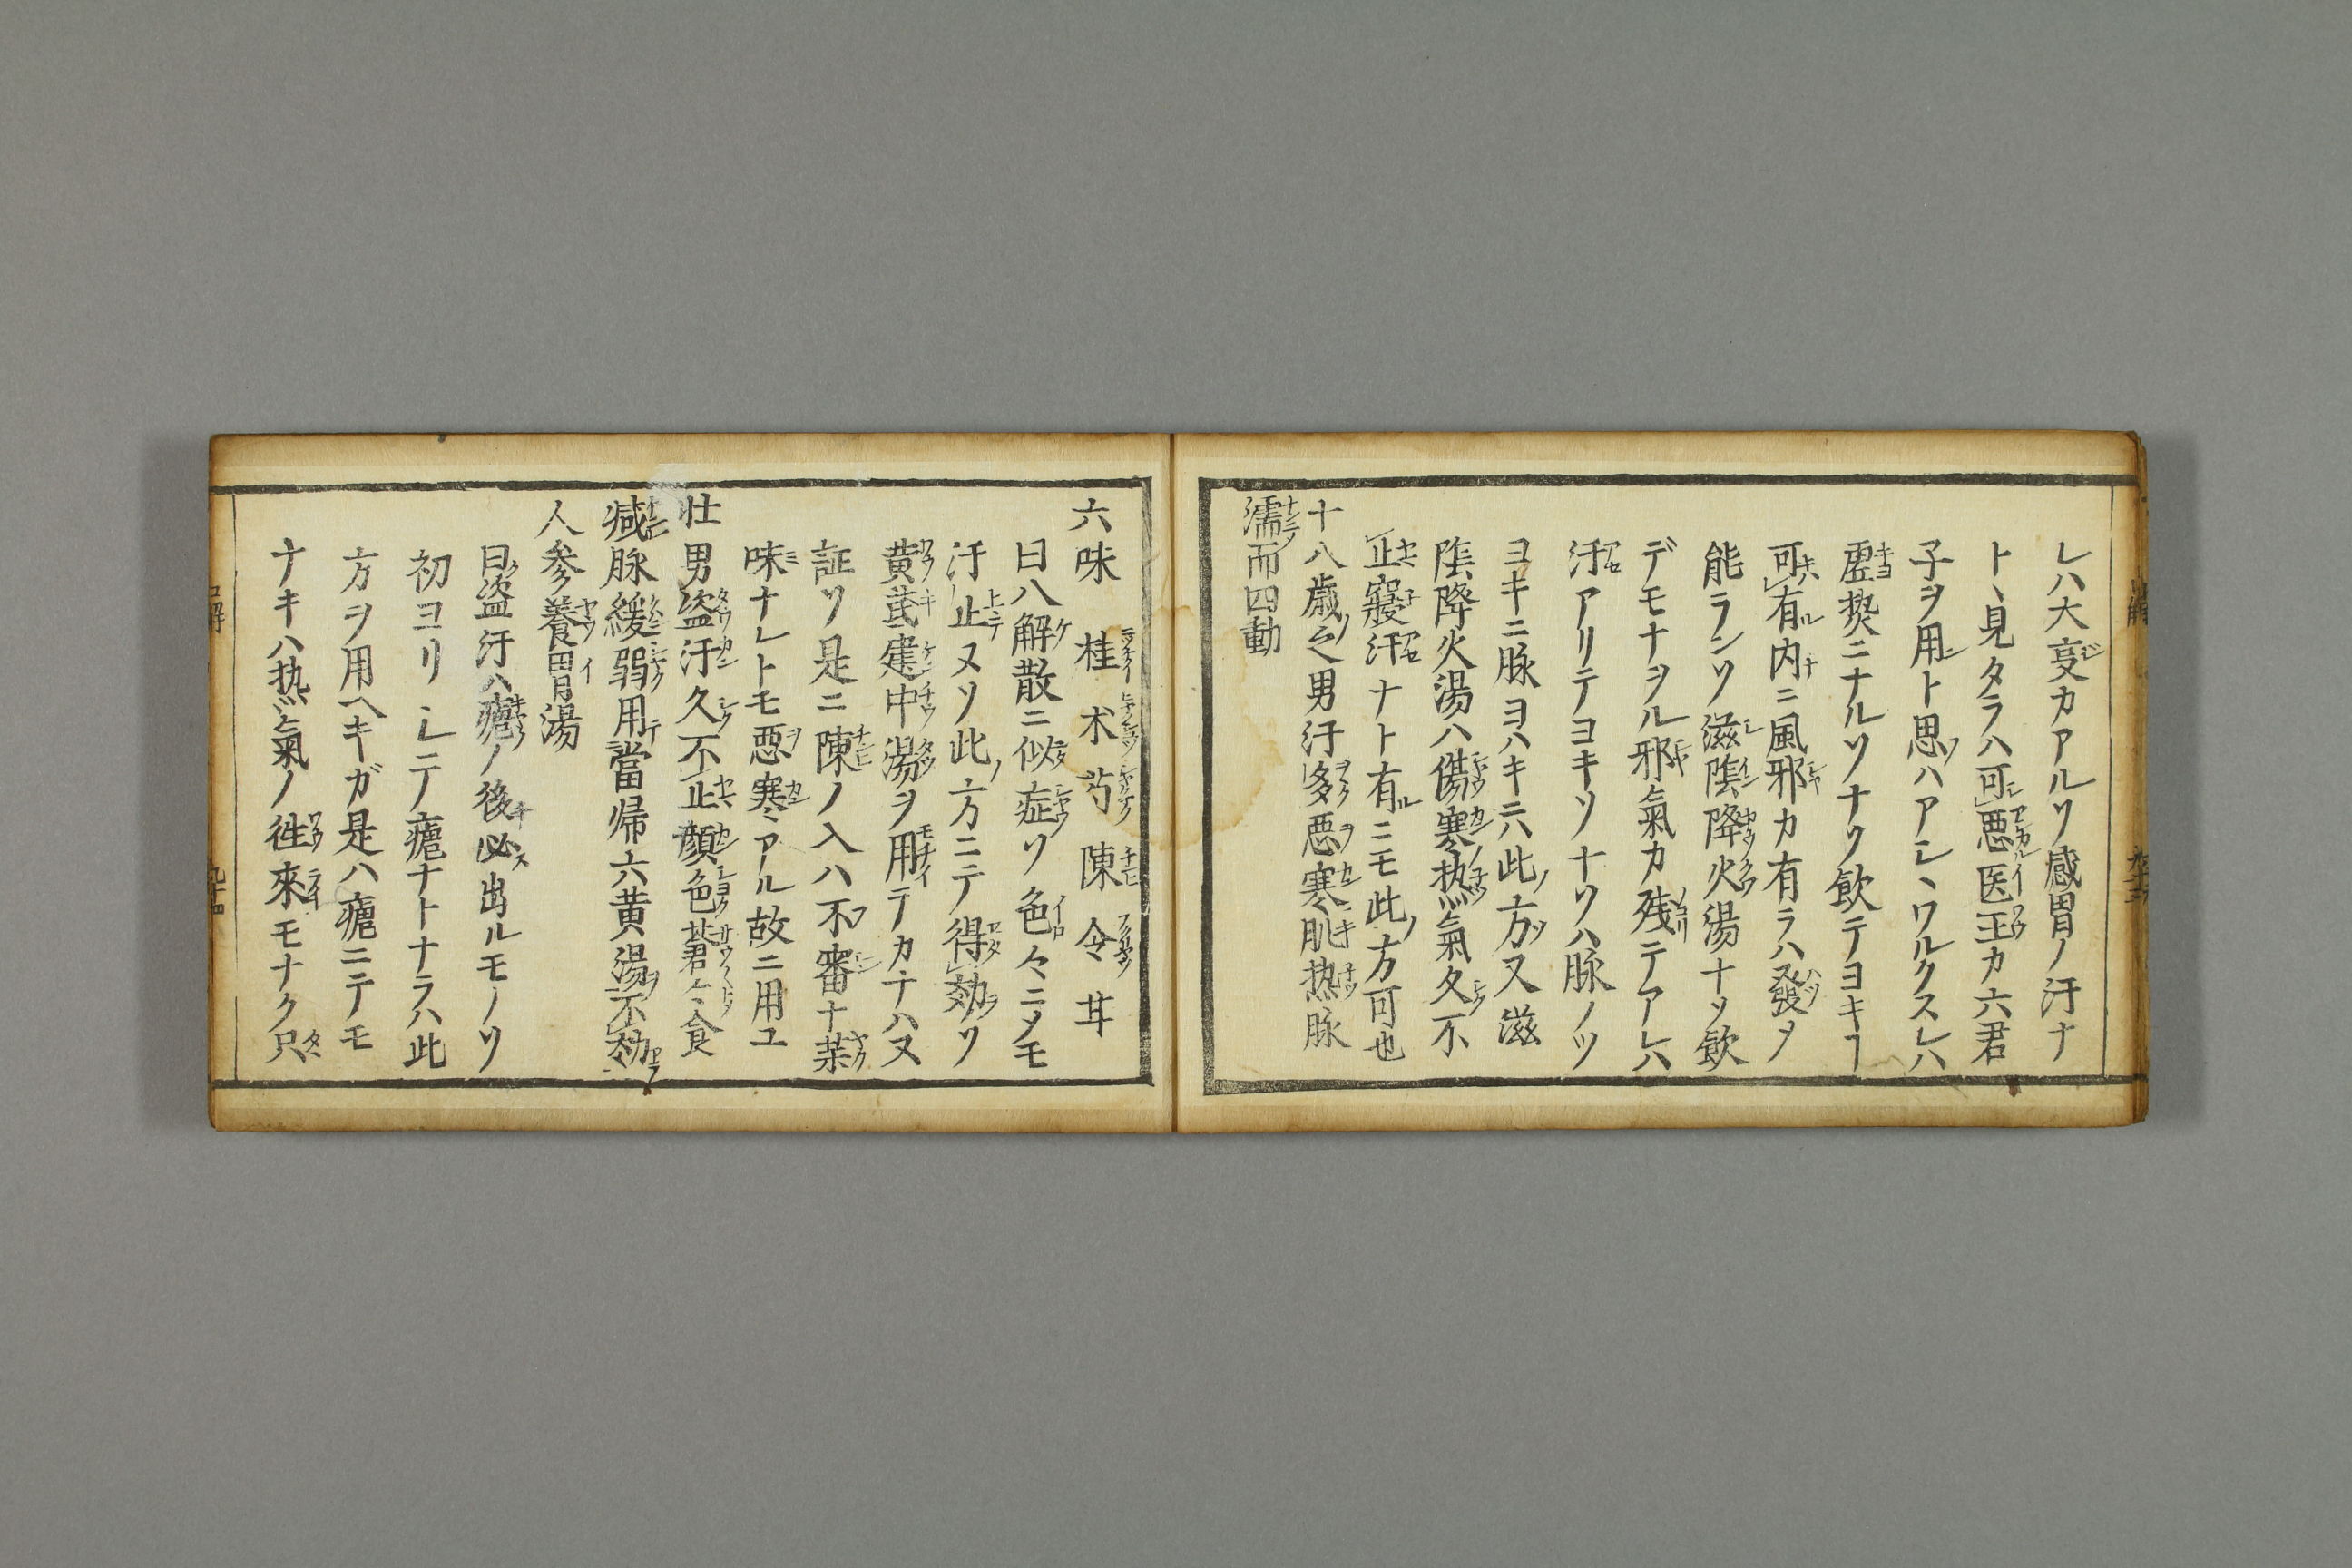 レハ大変カアルソ感冒ノ汗ナ
ト、見タラハ可悪医王カ六君
子ヲ用ト思ハアシ、ワルクスレハ
虚熱ニナルソナソ飲テヨキヿ
可有内ニ風邪カ有ラハ發ヲ
能ランソ滋陰降火湯ナソ飲
デモナヲル邪氣カ残テアレハ
汗アリテヨキソナソハ脉ノツ
ヨキニ脉ヨハキニハ此方又滋
陰降火湯ハ傷寒热氣久不
止寢汗ナト有ニモ此方可也
十八歳之男汗多悪寒肌热脉
濡而四動
六味 桂 朮 芍 陳 令 甘
曰八解散ニ似症ソ色々ニメモ
汗止ヌソ此方ニテ得効ソ
黄茋建中湯ヲ用テカナハヌ
証ソ是ニ陳ノ入ハ不審ナ薬
味ナレトモ悪寒アル故ニ用ユ
壮男盗汗久不止顔色蒼々食
减脉緩弱用當帰六黄湯不効
人参養胃湯
曰盗汗ハ瘧ノ後必出ルモノソ
初ヨリシテ瘧ナトナラハ此
方ヲ用ヘキガ是ハ瘧ニテモ
ナキハ热氣ノ徃來モナク只
口解
九十四